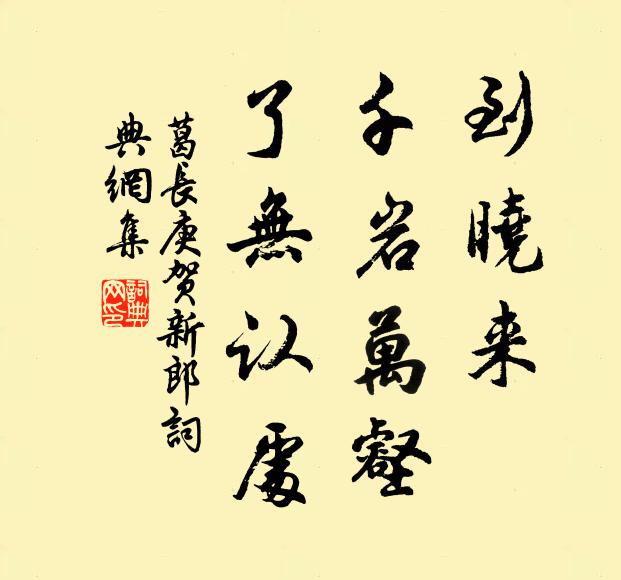 到曉来
千岩萬壑
了無认處
葛長庚賀新郎詞
典網集
詞典
网印